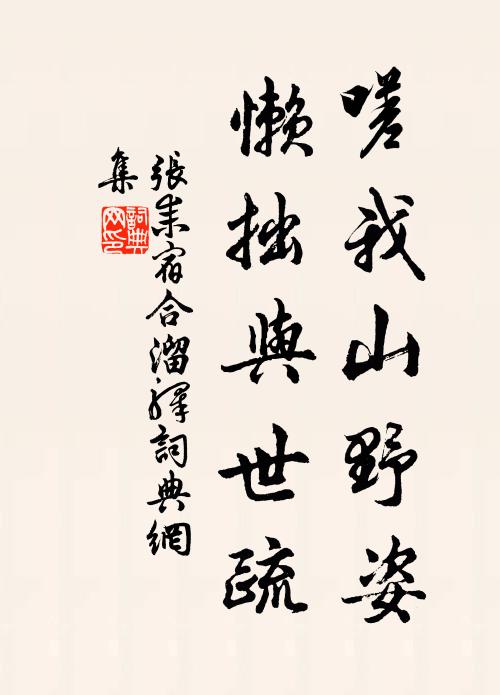 嗟我山野姿
懶拙與世疏
張耒宿合溜驛詞典網
集
詞典
网印